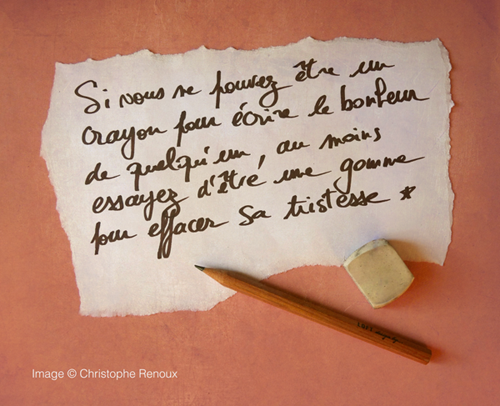 Si vous ne pouvez être un
crayon pour écrire le bonheur
de quelqu'un, au moins
essayez d'être une gomme
pour effacer sa tristesse *
Image © Christophe Renoux